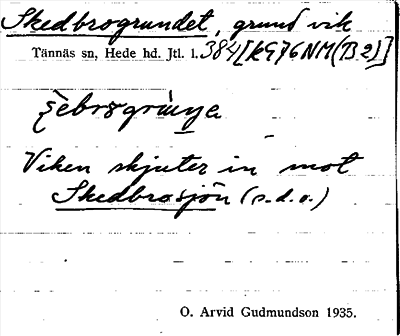 Skedbrogrundet, grund vik
Tännäs sn, Hede hd. Jtl. l. 384 [kG76NM(B2)]
Viken skjuter in mot
Skedbrosjön (s.d.o.)
O. Arvid Gudmundson 1935.